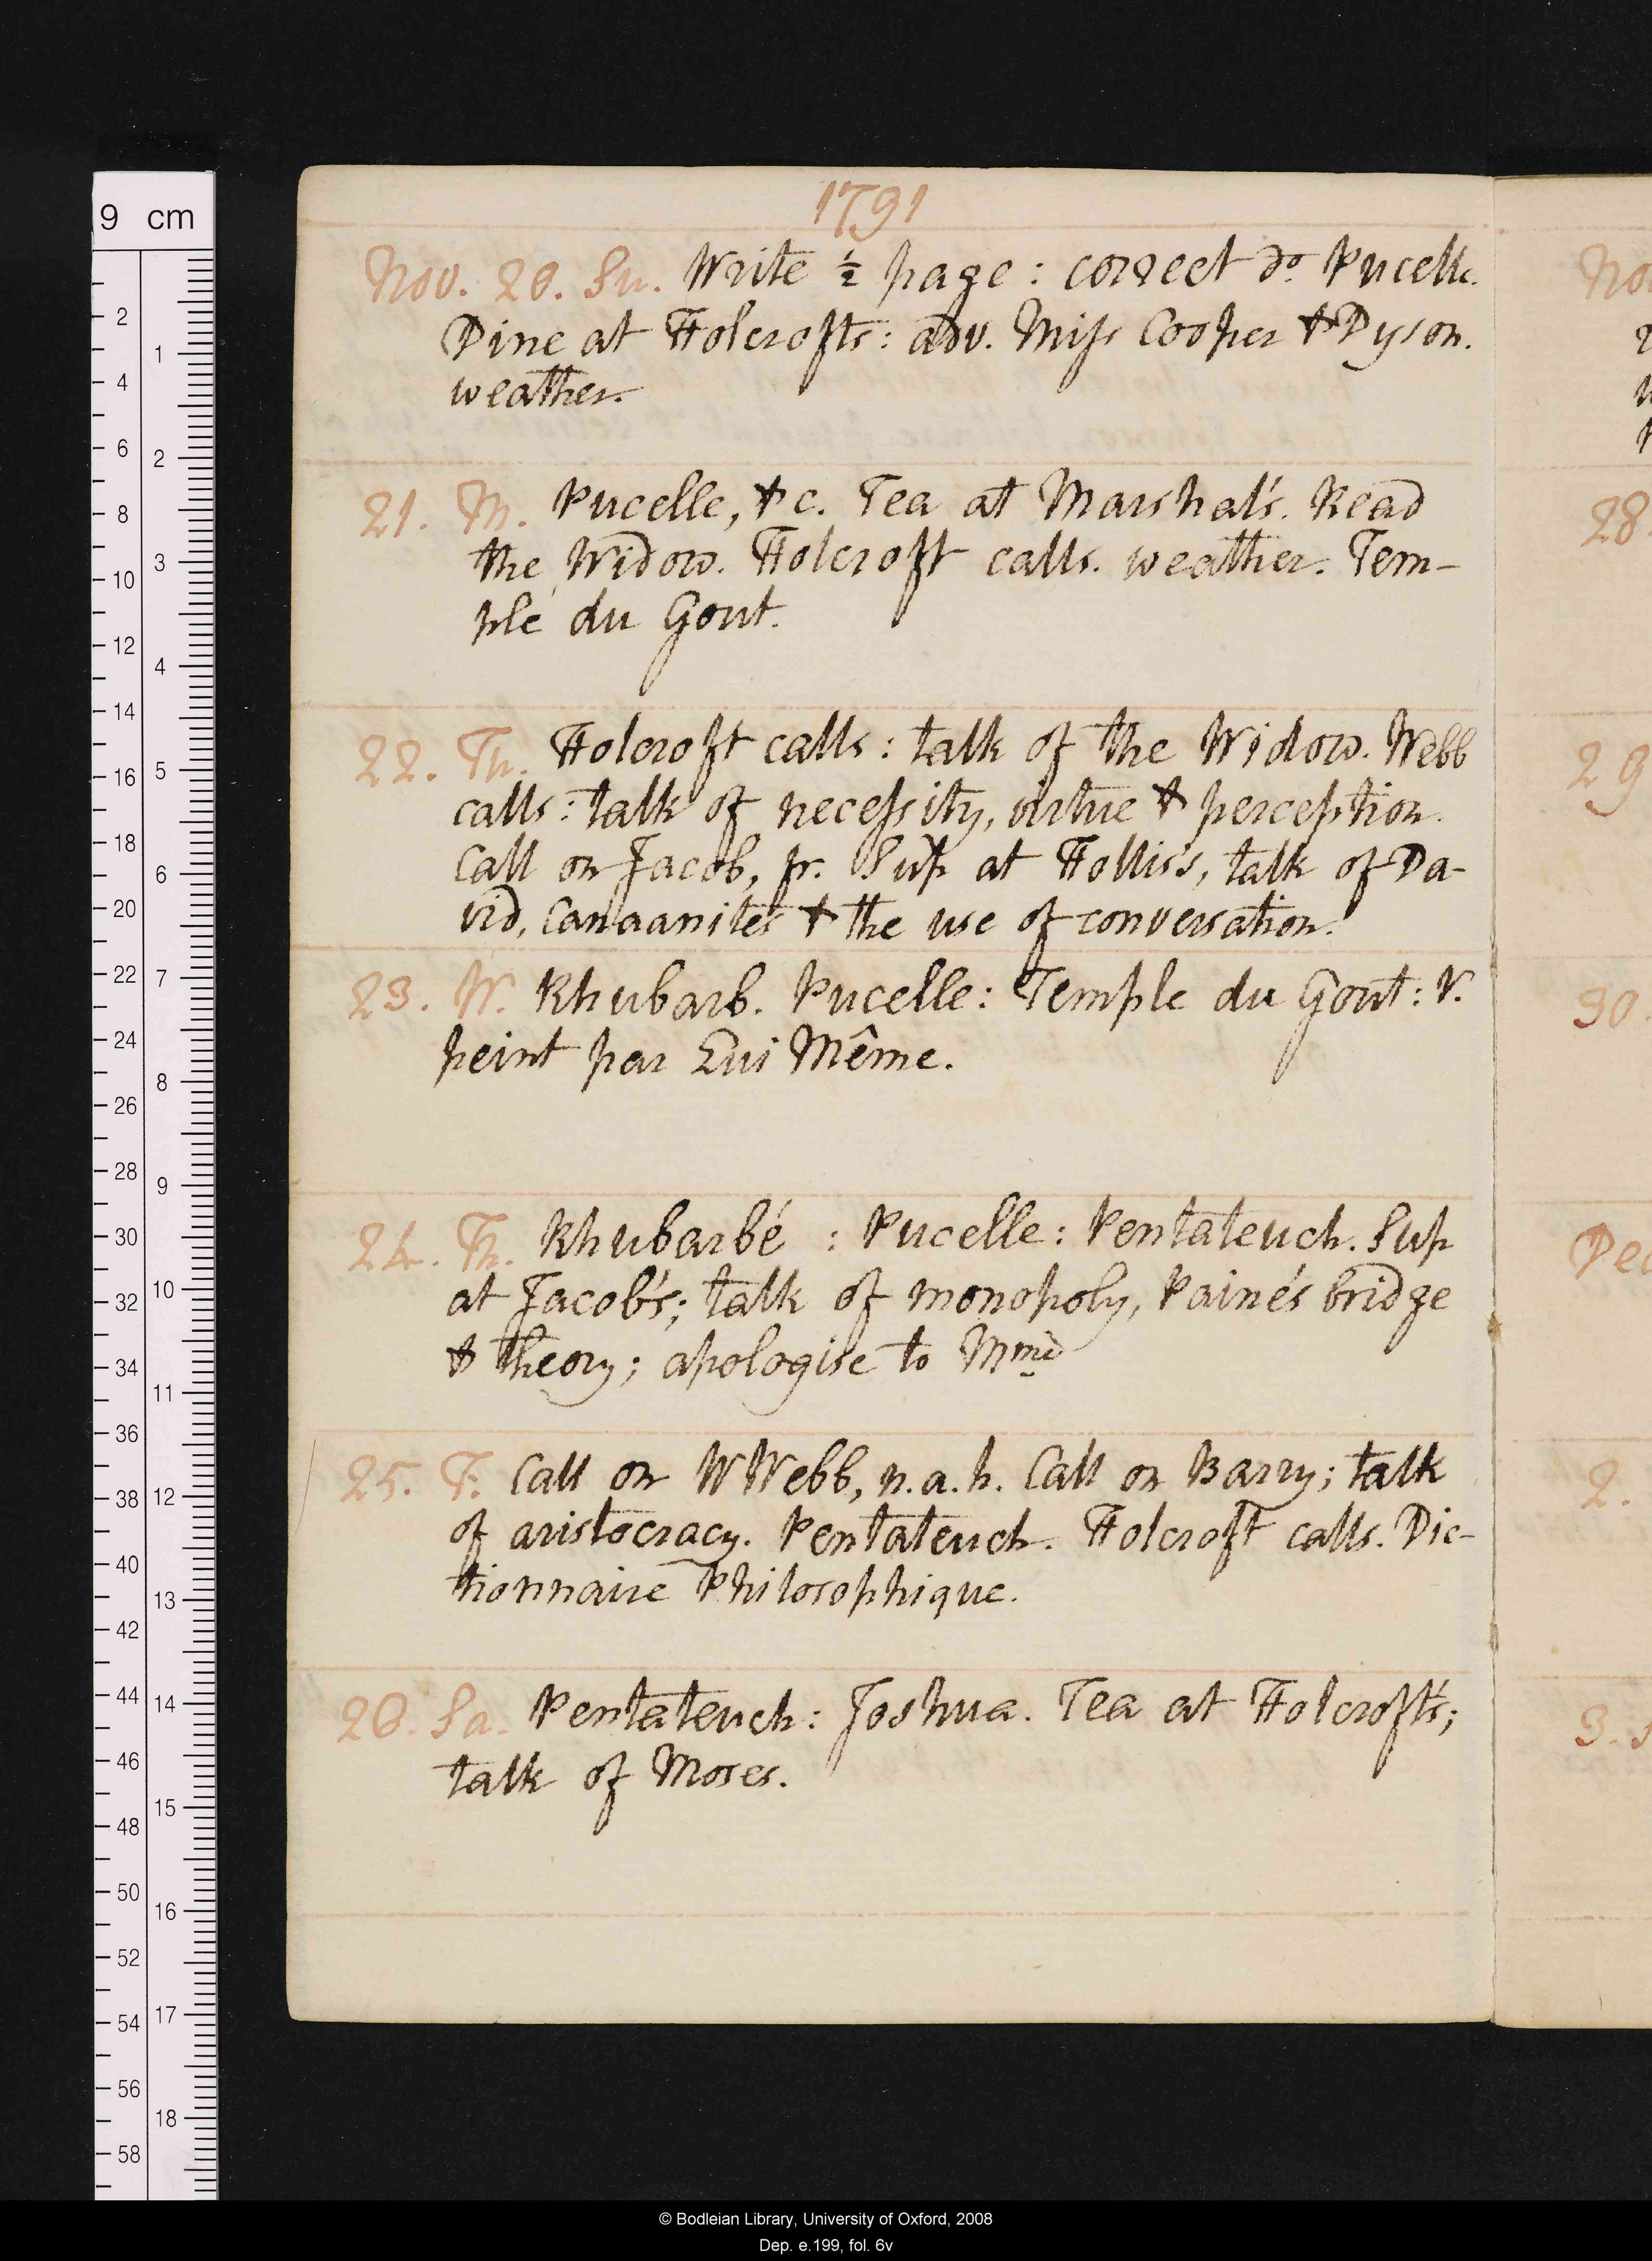 1791
Nov. 20. Su. Write ½ page: correct do. Pucelle.
Dine at Holcrofts: adv. Miss Cooper & Dyson.
weather.
21. M. Pucelle, &c. Tea at Marshal's. Read
the Widow. Holcroft calls. weather. Tem-
ple du Gout.
22. Tu. Holcroft calls: talk of the Widow. Webb
calls: talk of necessity, virtue & perception.
Call on Jacob, pr. Sup at Hollis's, talk of Da-
vid, Canaanites & the use of conversation.
23. W. Rhubarb. Pucelle: Temple du Gout: V.
peint par Lui Même.
24. Th. Rhubarbé : Pucelle: Pentateuch. Sup
at Jacob's; talk of monopoly, Paine's bridge
& theory; apologise to Mme
25. F. Call on W Webb, n.a.h. Call on Barry; talk
of aristocracy. Pentateuch. Holcroft calls. Dic-
tionnaire Philosophique.
26. Sa. Pentateuch: Joshua. Tea at Holcroft's;
talk of Moses.
Nov
28.
29
30.
Dec
2.
3. S
9 cm
2
4
6
8
10
12
14
16
18
20
22
24
26
28
30
32
34
36
38
40
42
44
46
48
50
52
54
56
58
1
2
3
4
5
6
7
8
9
10
11
12
13
14
15
16
17
18
© Bodleian Library, University of Oxford, 2008
Dep. e.199, fol. 6v